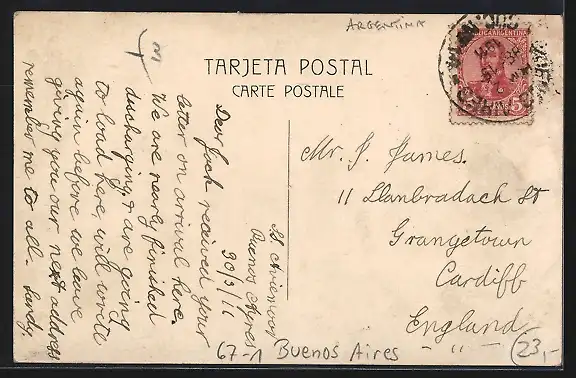 ARGENTINA
TARJETA POSTAL
CARTE POSTALE
REPUBLICA ARGENTINA
5
Mr. J. James.
11 Llanbradach St
Grangetown
Cardiff
England
- " -
SS
Buenos Ayres
30/3/11
Dear Jack received your
letter on arrival here.
We are nearly finished
discharging & are going
to load here, will write
again before we leave
giving you our next address
remember me to all.
67-1 Buenos Aires
23,-